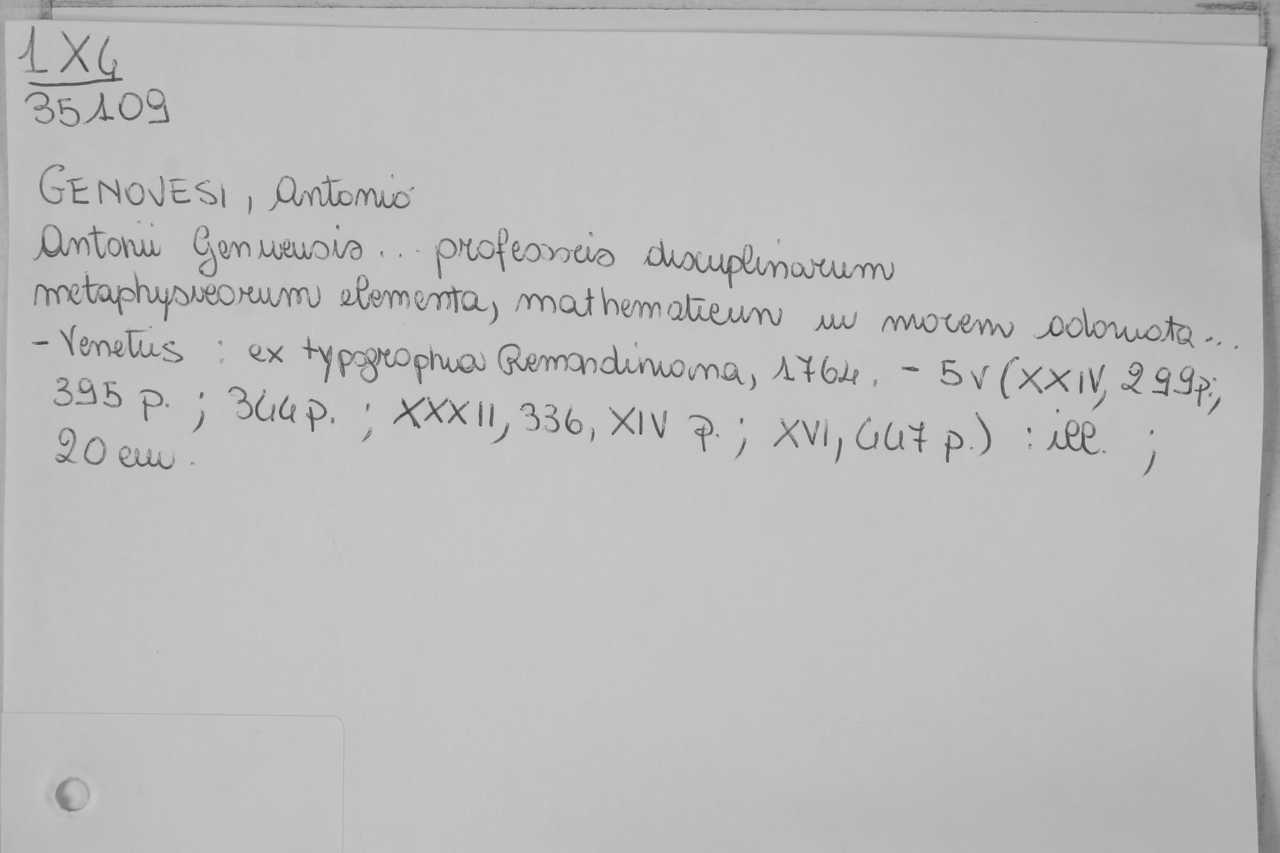 1 X 4
35109
GENOVESI, Antonio
Antonii Genuensis... professoris disciplinarum
metaphysicorum elementa, mathematicum in morem adornata...
- Venetiis : ex typographia Remondiniana, 1764. - 5 v (XXIV, 299 p.;
395 p. ; 344 p. ; XXXII, 336, XIV p. ; XVI, 447 p.) : ill. ;
20 cm.